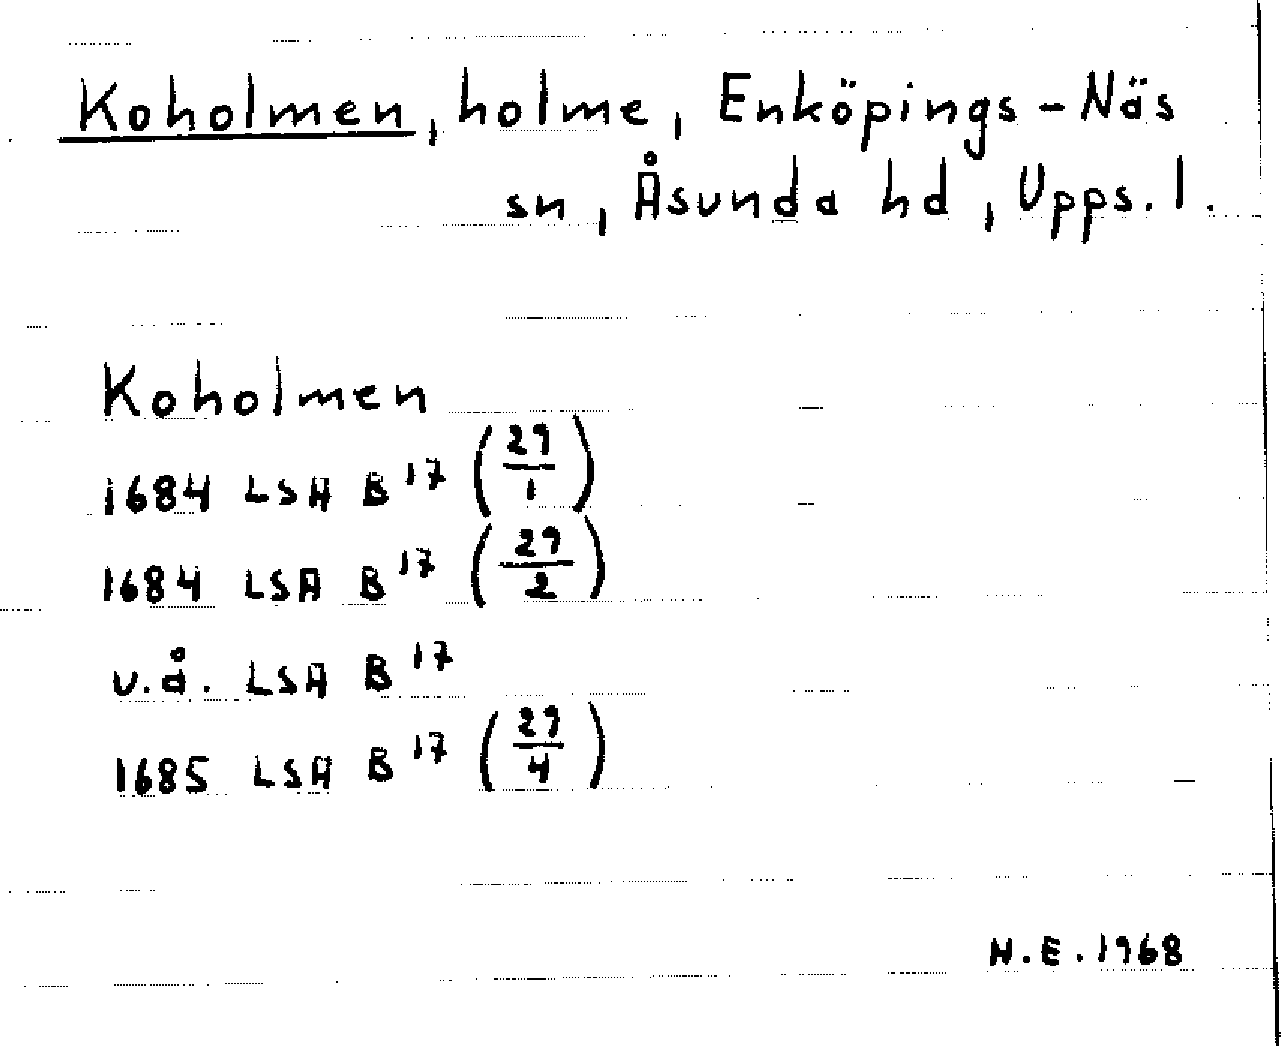 Koholmen, holme, Enköpings-Näs
sn, Åsunda hd, Upps. l.
Koholmen
1684 LSA B¹⁷ (29/1)
1684 LSA B¹⁷ (29/2)
u.å. LSA B¹⁷
1685 LSA B¹⁷ (29/4)
N.E. 1968